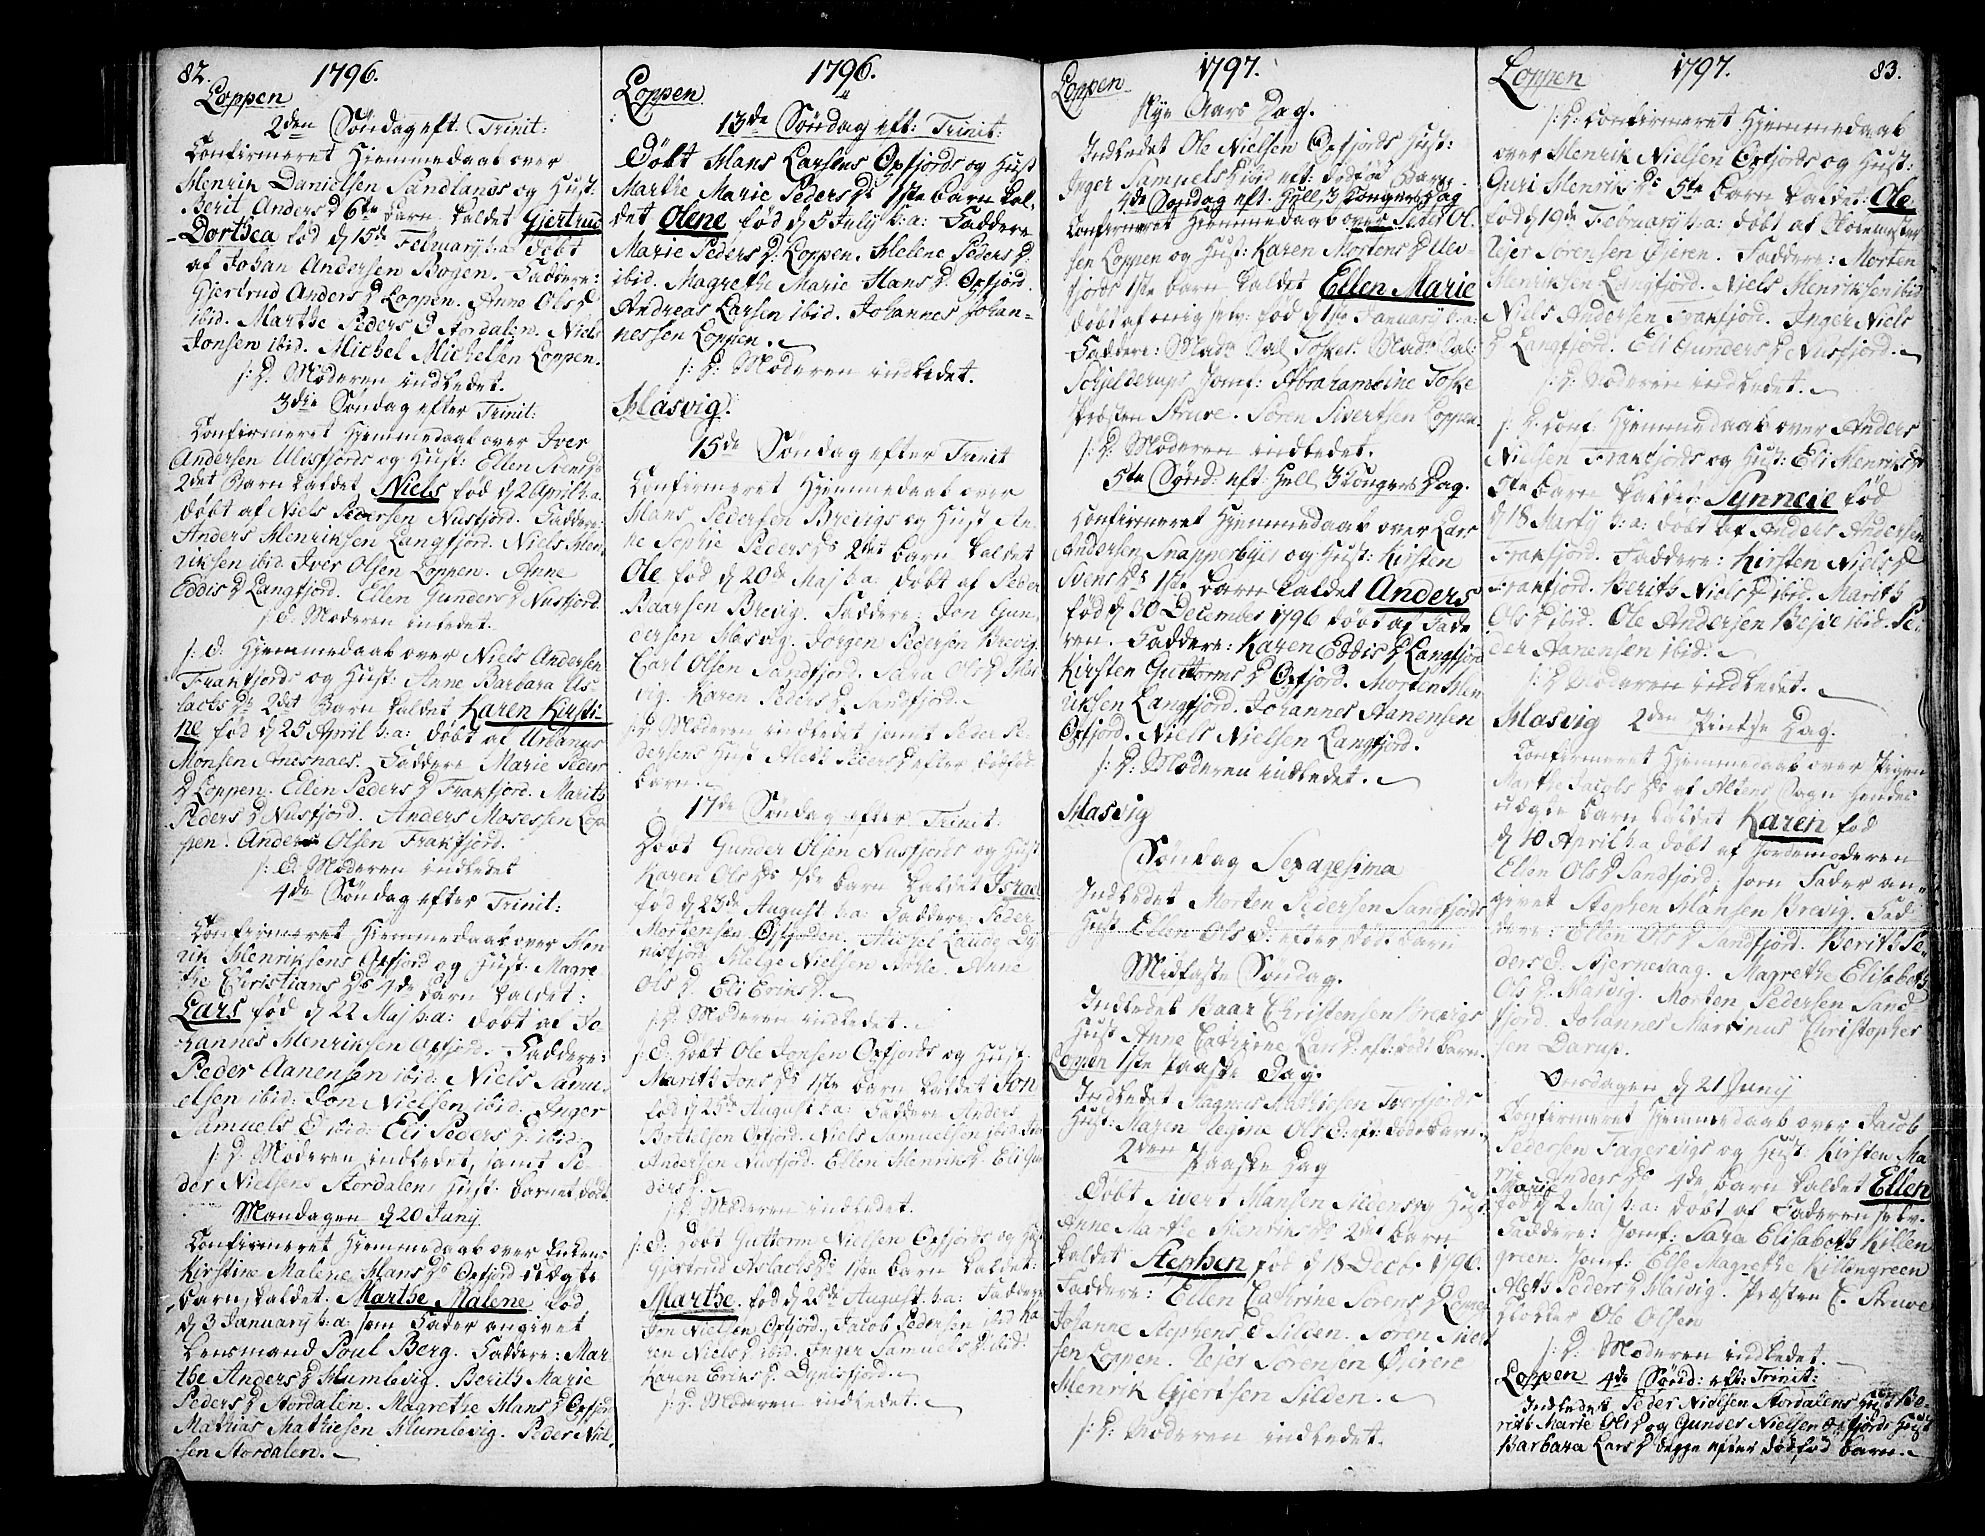 82. 1796.
Loppen
2den Søndag eft. Trinit:
Confirmeret Hjemmedaab over
Henrik Danielsen Sandlands og Hust:
Berit Anders D 6te Barn kaldet Gjertrud
Dorthea fød d 15de Februarij h:a: døbt
af Johan Andersen Bogen. Faddere:
Gjertrud Anders D Loppen. Anne Ols D
ibid. Marthe Peders D Stordalen. Niels
Jonsen ibid. Michel Michelsen Loppen.
s: D: Moderen indledet.
3die Søndag efter Trinit:
Confirmeret Hjemmedaab over Iver
Andersen Ulvsfjords og Hust: Ellen Svends D
2det Barn kaldet Niels fød d 2 April h:a.
døbt af Niels Pedersen Nusfjord. Faddere:
Anders Henriksen Langfjord. Niels Hen
riksen ibid. Iver Olsen Loppen. Anne
Eddis D Langfjord. Ellen Gunders D Nusfjord.
s: D. Moderen indledet.
s: D: Hjemmedaab over Niels Andersen
Frakfjords og Hust: Anne Barbara As-
lacks Ds 2det Barn kaldet Karen Kirsti-
ne fød d 25 April h:a: døbt af Urbanus
Monsen Anesnaes. Faddere Marie Peder
D Loppen. Ellen Peders D Frakfjord. Marith
Peders D Nusfjord. Anders Mosessen Lop
pen. Anders Olsen Frakfjord.
s: D. Moderen indledet
4de Søndag efter Trinit:
Confirmeret Hjemmedaab over Hen
rik Henriksens Øxfjord og Hust. Magre
the Christians Ds 4de Barn kaldet:
Lars fød d 22 Maj h:a: døbt af Jo
hannes Henriksen Øxfjord. Faddere:
Peder Aanensen ibid. Niels Samu
elsen ibid. Jon Nielsen ibid. Inger
Samuels D ibid: Eli Peders D. ibid.
s: D: Moderen indledet, samt Pe-
der Nielsens Stordalens Hust.
Mandagen d 20 Junij
Confirmeret Hjemmedaab over Enken
Kirstine Malene Hans Ds Øxfjord uægte
Barn, kaldet. Marthe Malene fød
d 3 January h:a: som Fader angivet
Lensmand Poul Berg. Faddere: Mar
the Anders D Humlevig. Berith Marie
Peders D Stordalen. Magrethe Hans D Øxfjord
Mathias Mathiesen Humlevig. Peder Niel
sen Stordalen.
1796.
Loppen
13de Søndag eft: Trinit:
Døbt Hans Larsens Øxfjords og Hust
Marthe Marie Peders Ds 1ste Barn kal-
det Olene fød d 5 July h:a: Faddere
Marie Peders D. Loppen. Helene Peders D.
ibid. Magrethe Marie Hans D. Øxfjord.
Andreas Larsen ibid. Johannes Johan-
nessen Loppen.
s: D: Moderen indledet.
Hasvig.
15de Søndag efter Trinit
Confirmeret Hjemmedaab over
Hans Pedersen Brevigs og Hust An-
ne Sophie Peders Ds 2det Barn kaldet
Ole fød d 20de Maj h:a. døbt af Peder
Baarsen Brevig. Faddere: Jon Gun
dersen Hasvig. Jørgen Pedersen Brevig.
Carl Olsen Sandfjord. Sara Ols D Has
vig. Karen Peders D Sandfjord.
s: D Moderen indledet samt Peder Pe-
dersens Hust Aleth Peders D efter dødfød
Barn.
17de Søndag efter Trinit:
Døbt Gunder Olsen Nusfjords og Hust
Karen Ols Ds 7de Barn kaldet Israel
fød d 23de August h:a: Faddere: Peder
Mortensen
Helge Nielsen Anne
Ols D. Eli Erics D.
s: D: Moderen indledet.
s: D: Døbt Ole Jonsen Øxfjords og Hust.
Marith Jons Ds 1ste Barn kaldet Jon
fød d 25de August h:a: Faddere Anders
Bottelsen Øxfjord. Niels Samuelsen ibid
Andersen Nusfjord. Ellen Henriks D. Eli Gun
ders D.
s: D: Moderen indledet.
s: D: Døbt Guttorm Nielsen Øxfjords og Hust
Gjertrud Aslachs Ds 1ste Barn kaldet:
Marthe. fød d 28de August h:a: Faddere
Jon Nielsen Øxfjord. Jacob Pedersen ibid Ka
ren Niels D ibid. Inger Samuels D ibid.
Karen Erics D. Dynesfjord.
s: D: Moderen indledet.
1797.
Loppen
Nye Aars Dag.
Indledet Ole Nielsen Øxfjords Hust:
Inger Samuels D ibid eft. dødfød Barn
4de Søndag eft. Hell. 3 Kongers Dag
Confirmeret Hjemmedaab over Peder Ol
sen Loppen og Hust: Karen Mortens D
fjords 1ste Barn kaldet Ellen Marie
døbt af mig selv: fød d 1ste January h:a:
Faddere: Madm Sal: Foskes. Madm Sal:
Schjelderups Jomf: Abrahameline Foske
Præsten Struve. Søren Sivertsen Loppen.
s: D: Moderen indledet.
5te Sønd: eft: Hell 3 Kongers Dag.
Confirmeret Hjemmedaab over Lars
Andersen Snapperbyes og Hust: Kirsten
Svens Ds 1ste Barn kaldet Anders
fød d 30 December 1796 døbt af Fade
ren. Faddere: Karen Eddis D Langfjord
Kirsten Guttorms D Øxfjord. Morten Hen
riksen Langfjord. Johannes Aanensen
Øxfjord. Niels Nielsen Langfjord.
s: D: Moderen indledet.
Hasvig
Søndag Sexagesima
Indledet Morten Pedersen Sandfjords
Hust. Ellen Ols D: efter død: Barn
Midfaste Søndag.
Indledet Baar Christensen Brevigs
Hust Anne Cathrine Lars D: eft: født Barn.
Loppen 1ste Paaske Dag.
Indledet Magnus Tverfjords
Hust: Maren Ols D: eft: født Barn.
2den Paaske Dag
Døbt Sivert Hansen Sildens og Hust.
Anne Marthe Henriks Ds 2det Barn
kaldet Stephen fød d 18 Decbr 1796.
Faddere: Ellen Cathrine Sørens D Loppen
Johanne Stephens D Silden. Søren Sivert
sen Loppen. Sørensen Øieren
Henrik Gjertsen Silden.
s: D: Moderen indledet.
1797. 83.
Loppen
s: D: Confirmeret Hjemmedaab
over Henrik Nielsen Øxfjords og Hust:
Guri Henrik Ds 5te Barn kaldet: Ole
fød d 19de February h:a: døbt af
Sørensen Øieren. Faddere: Morten
Henriksen Langfjord. Niels Henriksen ibid.
Niels Andersen Frakfjord. Inger Niels
D Langfjord. Eli Gunders D Nusfjord.
s: D: Moderen indledet.
s: D. conf. Hjemmedaab over Anders
Nielsen Frakfjords og Hust: Eli Henriks Ds
5te Barn kaldet: Synneve fød
d 18 Marty h:a: døbt af Anders Andersen
Frakfjord. Faddere: Kirsten Niels D
Frakfjord. Berith Niels D ibid. Marith
Ols D ibid. Ole Andersen ibid. Pe-
der Aanensen ibid.
s: D Moderen indledet.
Hasvig 2den Pintse Dag.
Confirmeret Hjemmedaab over Pigen
Marthe Jacobs Ds af Altens Sogn hendes
uægte Barn kaldet Karen fød
d 10 April h:a døbt af Jordemoderen
Ellen Ols D Sandfjord, som Fader an-
givet Stephen Hansen Brevig. Fad
dere: Ellen Ols D Sandfjord. Berith Pe-
ders D. Magrethe Elisabeth
Ols D. Hasvig. Morten Pedersen Sand
fjord Johannes Martinus Christopher
sen Darup.
Onsdagen d 21 Junij
Confirmeret Hjemmedaab over Jacob
Pedersen Fagervigs og Hust. Kirsten Ma
Anders Ds 4de Barn kaldet Ellen
Marie fød d 2 Maj h:a: døbt af Faderen selv.
Faddere: Jomf: Sara Elisabeth Killen
green. Jomf: Else Magrethe Killengreen
Aleth Peders D Hasvig. Præsten C. Struve
Klokker Ole Olsen
s: D: Moderen indledet.
Loppen 4de Sønd: eft: Trinit:
Indledet Peder Nielsen Stordalens Hust Be
rith Marie Ols D og Gunder Nielsen Øxfjords Hust
Barbara Lars D begge efter dødfød Barn.